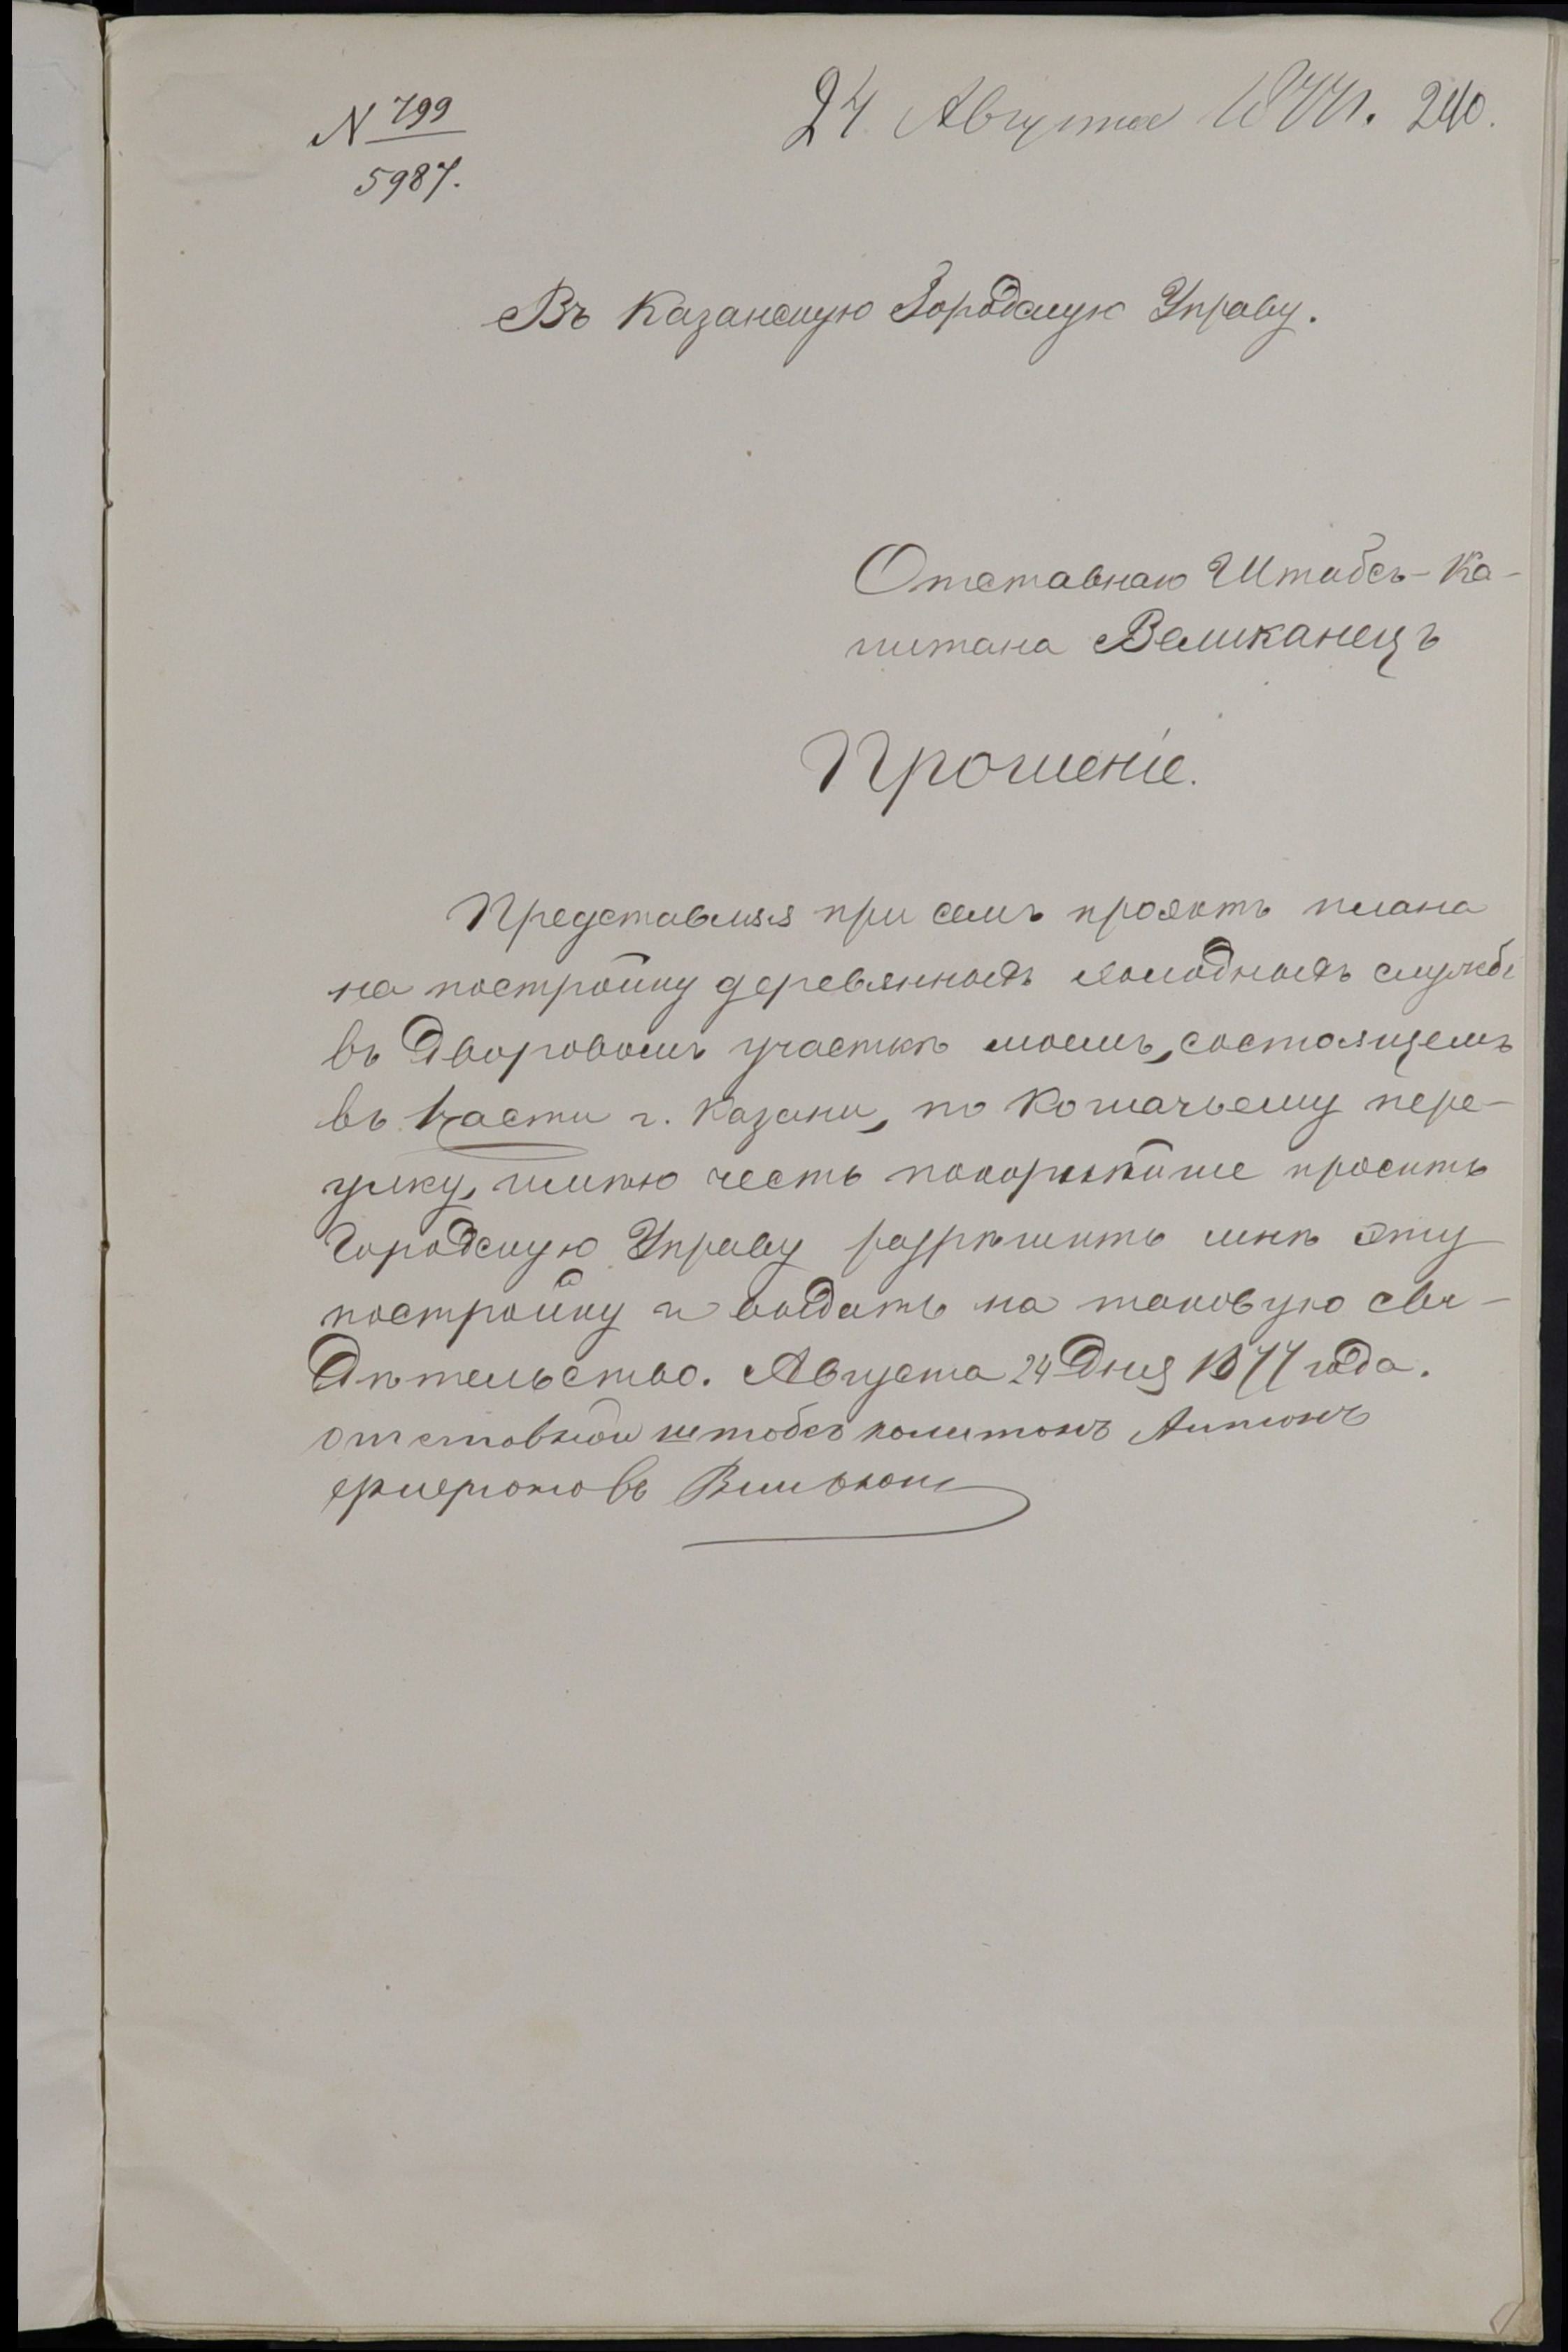 N 799
5987.
24 Августа 1877 г. 240.
Въ Казанскую Городскую Управу.
Отставнаго Штабсъ-Ка-
питана Великанецъ
Прошеніе.
Представляя при семъ проэктъ плана
на постройку деревянныхъ холодныхъ службъ
въ дворовомъ участкѣ моемъ, состоящемъ
въ части г. Казани, по Кошачьему пере-
улку, имѣю честь покорнѣйше просить
Городскую Управу разрѣшить мнѣ эту
постройку и выдать на таковую сви-
дѣтельство. Августа 24 дня 1877 года.
отставной штабсъ капитанъ Антонъ